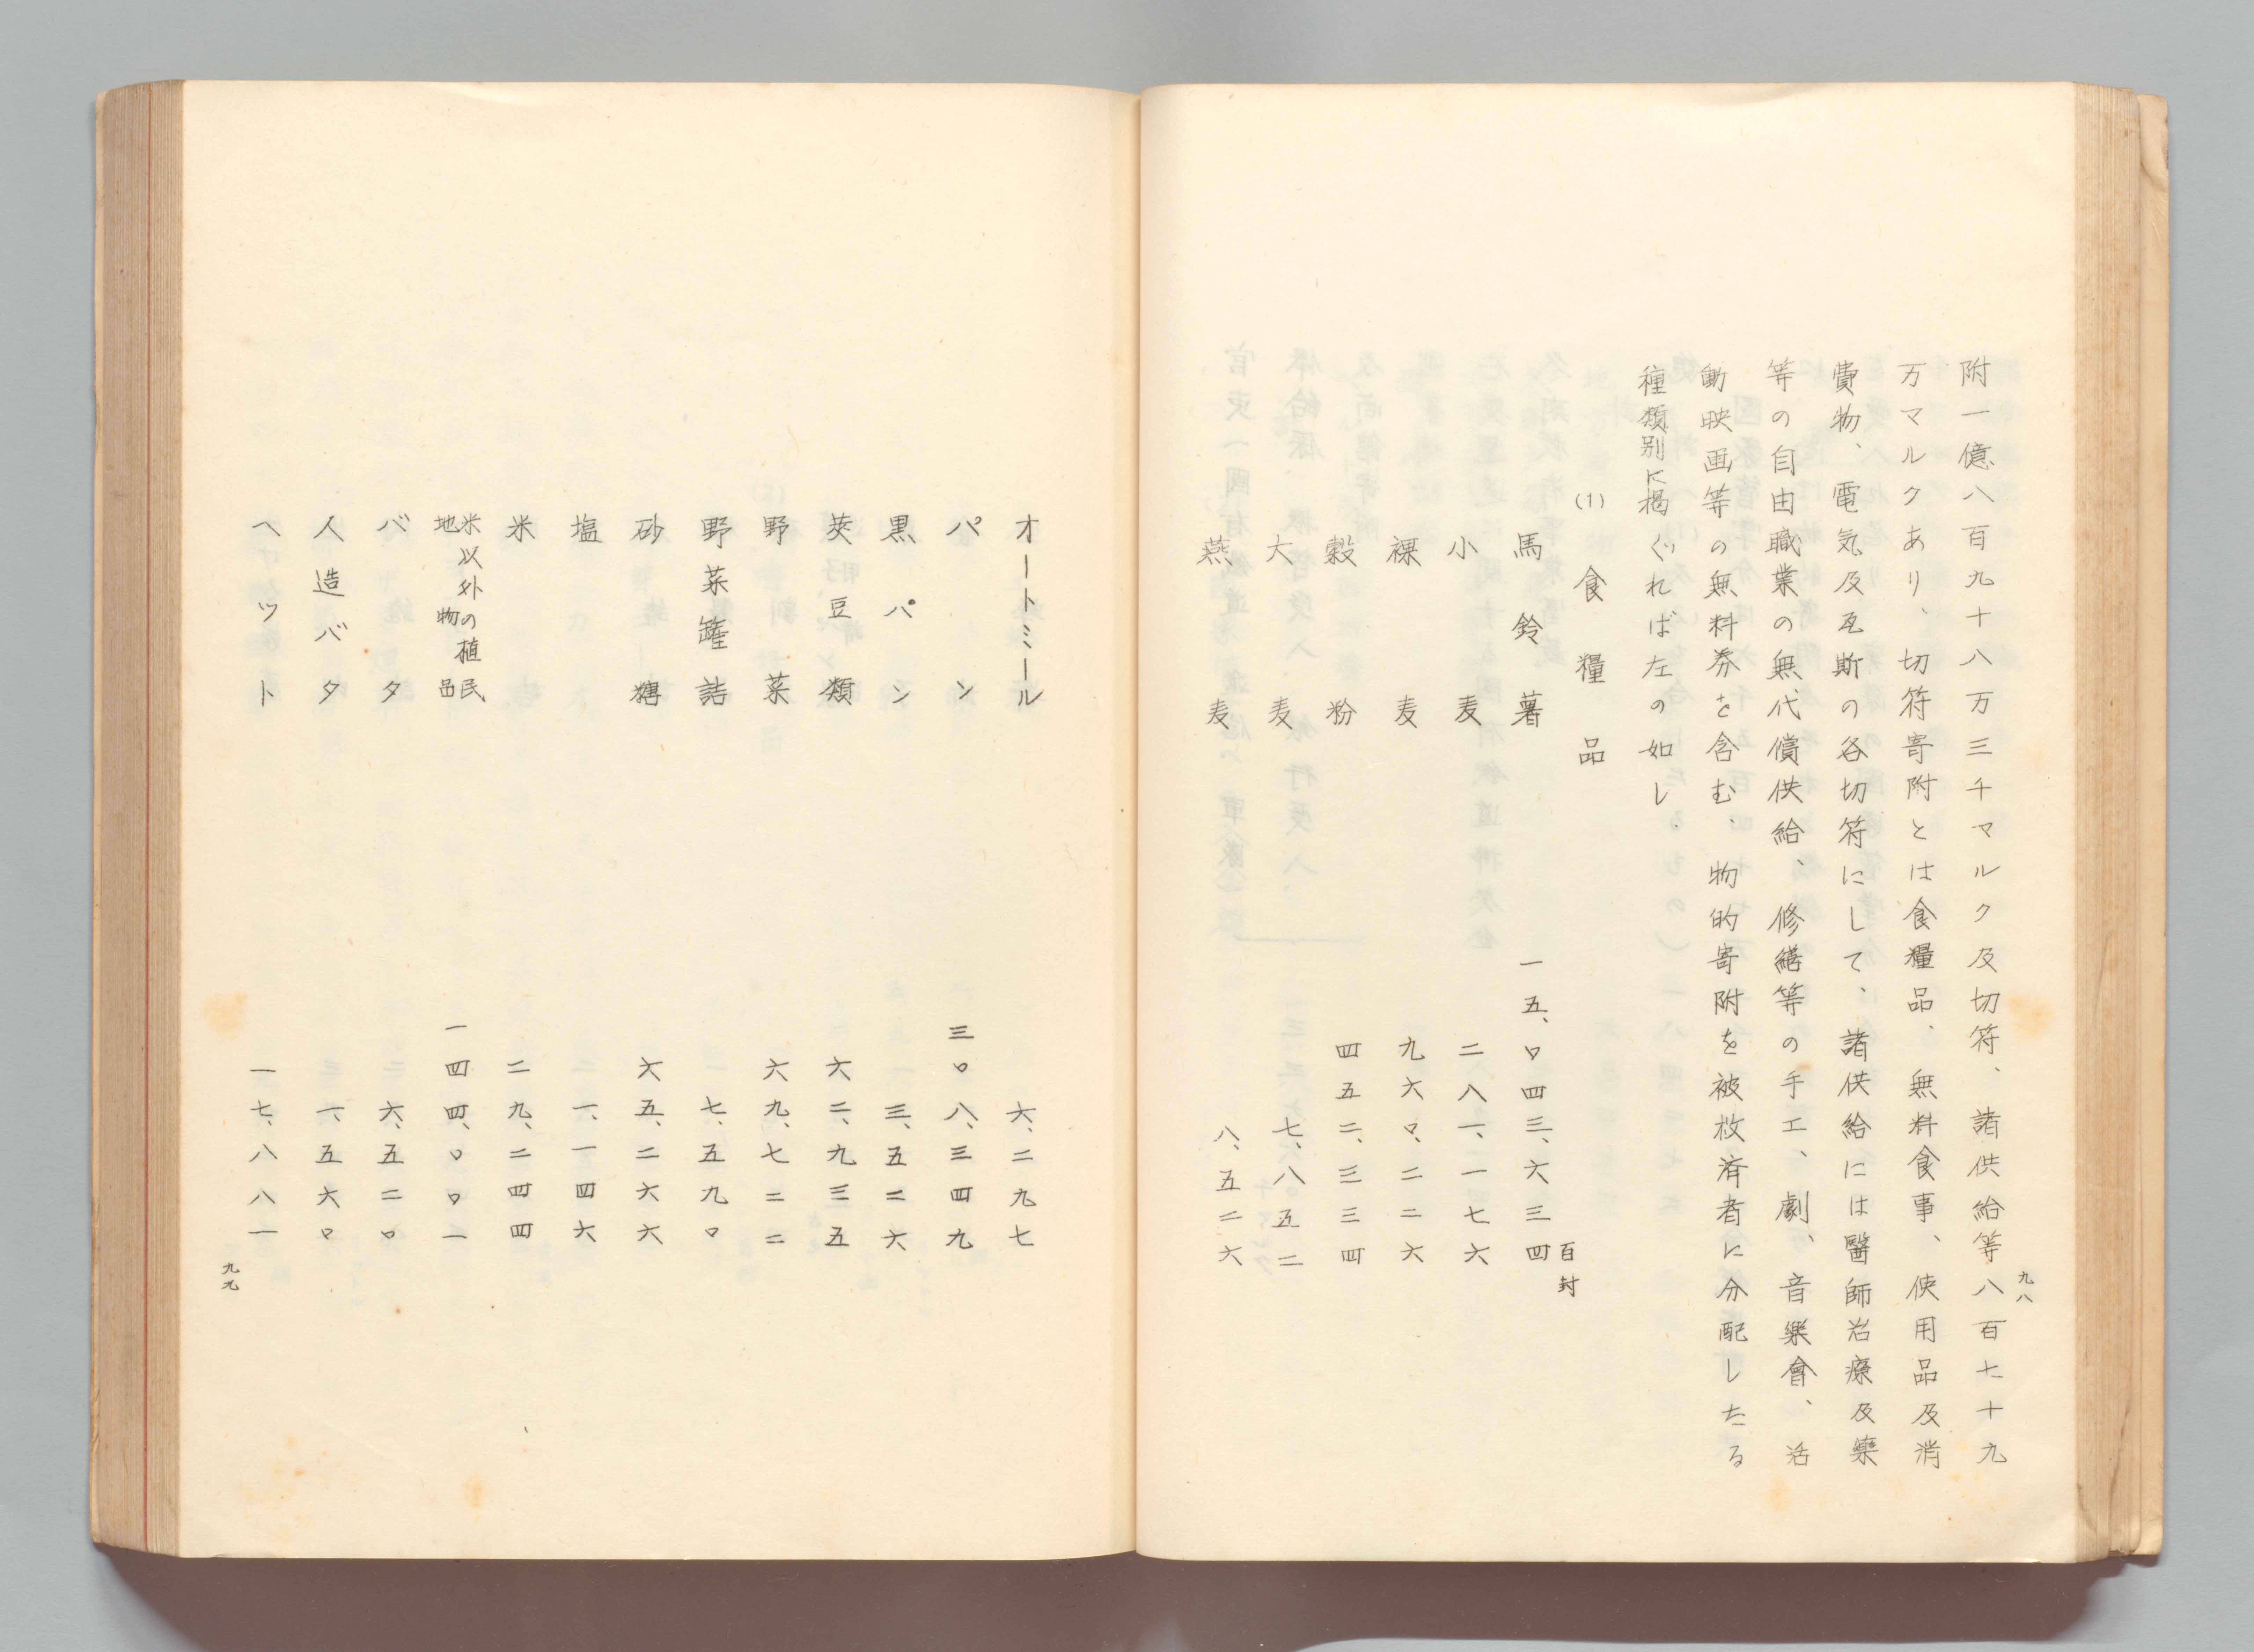 九八
附一億八百九十八万三千マルク及切符、諸供給等八百七十九
万マルクあり、切符寄附とは食糧品、無料食事、使用品及消
費物、電気及瓦斯の各切符にして、諸供給には醫師治療及藥
等の自由職業の無代償供給、修繕等の手工、劇、音樂會、活
動映画等の無料券を含む、物的寄附を被救済者に分配したる
種類別に掲ぐれば左の如し
(1) 食糧品
百封
馬鈴薯 一五、〇四三、六三四
小麦 二八一、一七六
裸麦 九六〇、二二六
穀粉 四五二、三三四
大麦 七、八五二
燕麦 八、五二六
オートミール 六、二九七
パン 三〇八、三四九
黒パン 三、五二六
莢豆類 六二、九三五
野菜 六九、七二二
野菜罐詰 七、五九〇
砂糖 六五、二六六
塩 一、一四六
米 二九、二四四
米以外の植民地物品 一四四、〇〇一
バタ 六、五二〇
人造バタ 一、五六〇
ヘット 一七、八八一
九九